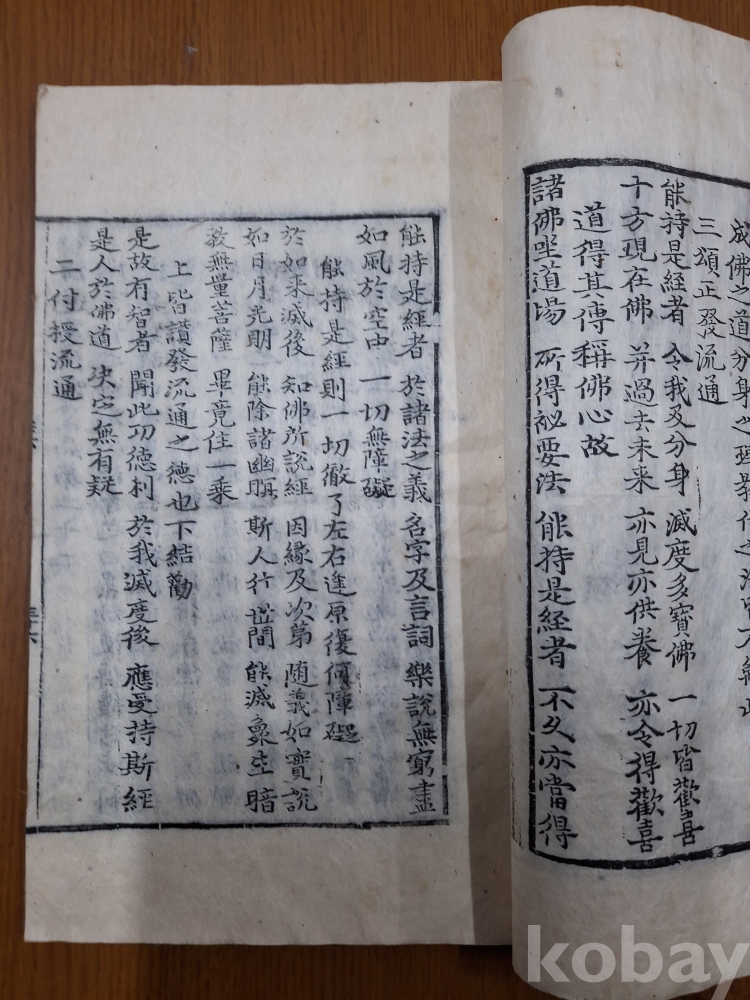 成佛之道分身之
三頌正發流通
能持是経者 令我及分身 滅度多寶佛 一切皆歡喜
十方現在佛 并過去未来 亦見亦供養 亦令得歡喜
道得其傳稱佛心故
諸佛坐道場 所得祕要法 能持是経者 不久亦當得
能持是経者 於諸法之義 名字及言詞 樂說無窮盡
如風於空中 一切無障礙
能持是経則一切徹了左右逢原復何障礙
於如来滅後 知佛所說経 因緣及次第 随義如實說
如日月光明 能除諸幽暝 斯人行世間 能滅衆生暗
教無量菩薩 畢竟住一乘
上皆讃發流通之德也下結勸
是故有智者 聞此功德利 於我滅度後 應受持斯経
是人於佛道 决定無有疑
二付授流通
kobay